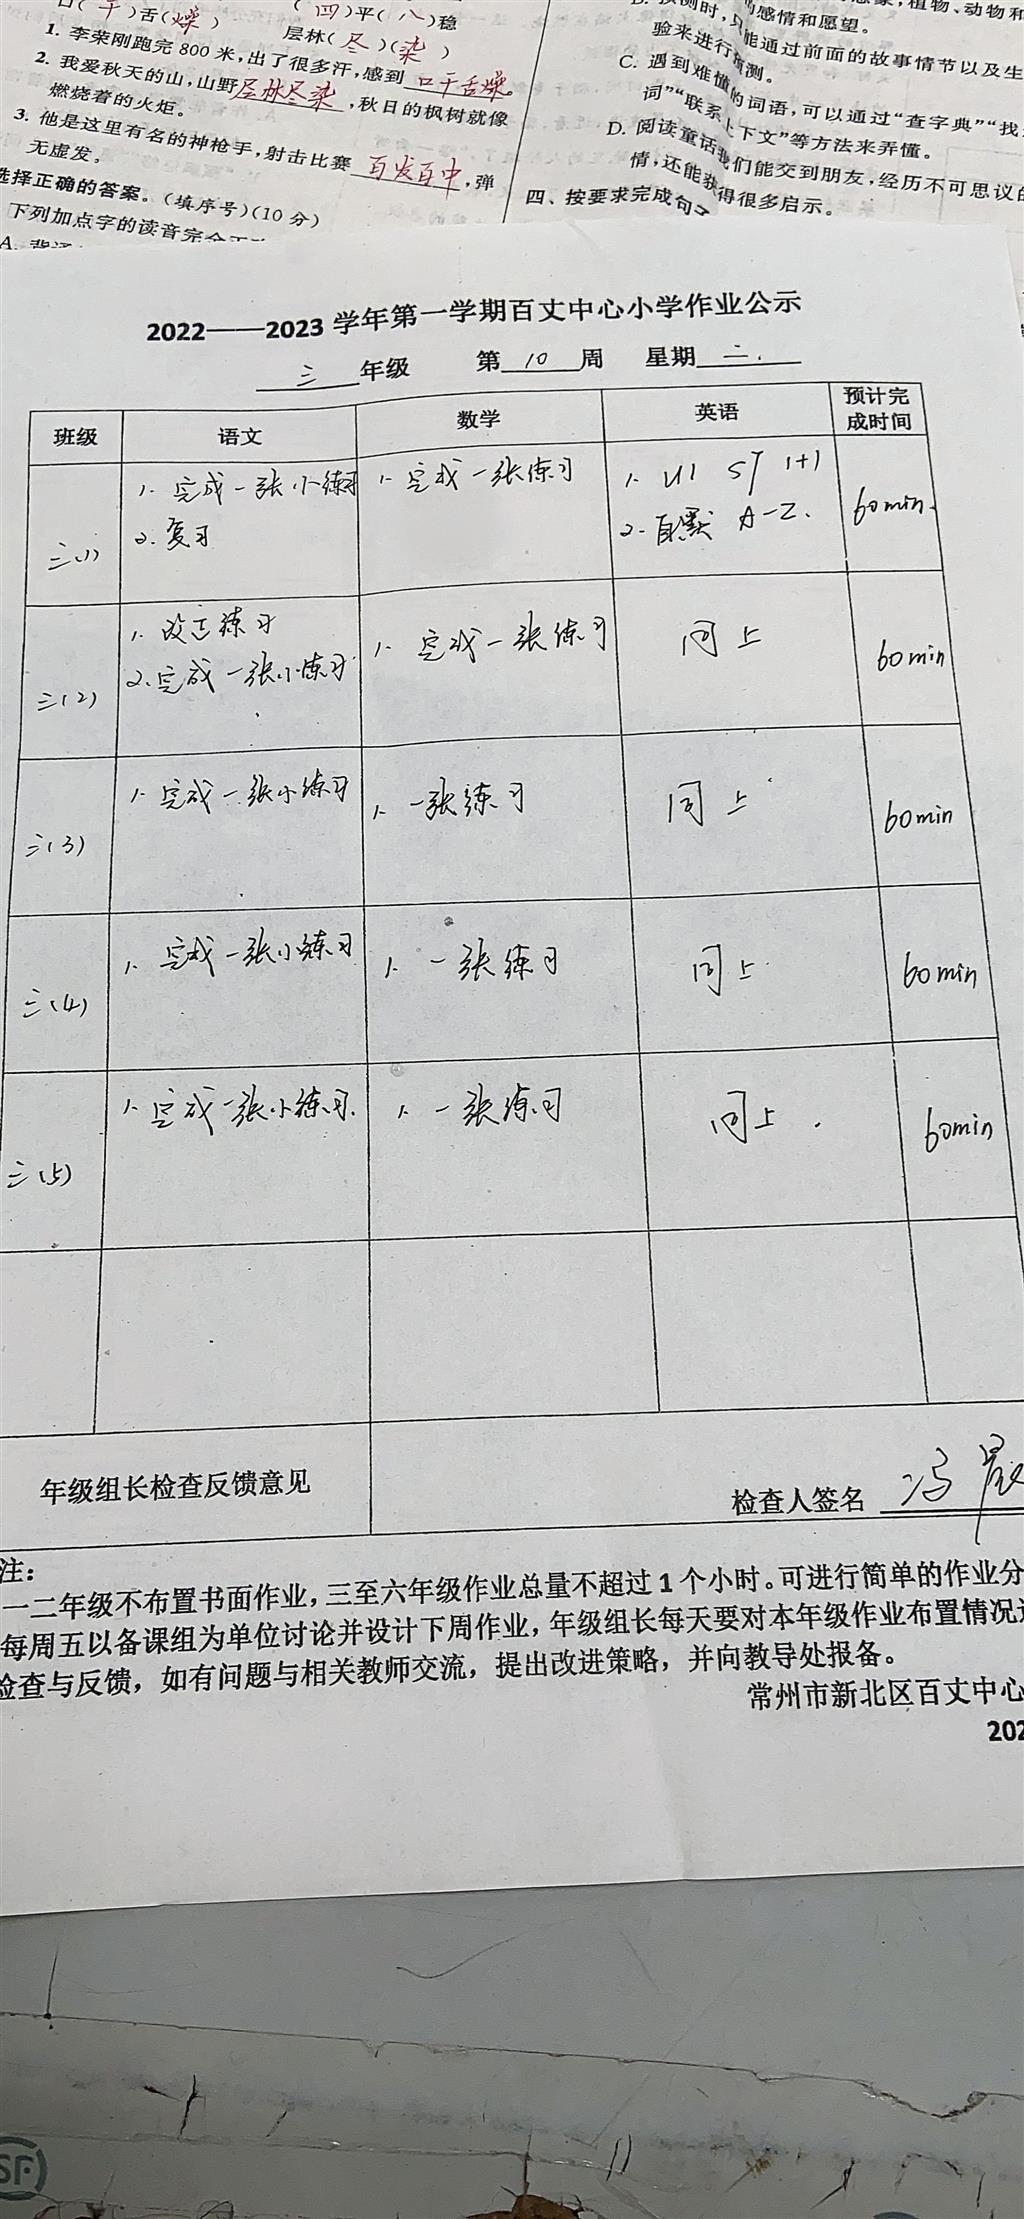 口(干)舌(燥)
(四)平(八)稳
层林(尽)(染)
1. 李荣刚跑完800米,出了很多汗,感到口干舌燥。
2. 我爱秋天的山,山野层林尽染,秋日的枫树就像
燃烧着的火炬。
3. 他是这里有名的神枪手,射击比赛百发百中,弹
无虚发。
选择正确的答案。(填序号)(10分)
下列加点字的读音完全正
植物、动物和
的感情和愿望。
能通过前面的故事情节以及生
验来进行预测。
C. 遇到难懂的词语,可以通过“查字典”“找
词”“联系上下文”等方法来弄懂。
D. 阅读童话我们能交到朋友,经历不可思议的
情,还能获得很多启示。
四、按要求完成句子
2022——2023 学年第一学期百丈中心小学作业公示
三 年级 第 10 周 星期 二.
班级 语文 数学 英语 预计完成时间
三(1) 1. 完成一张小练习 1. 完成一张练习 1. U1 ST 1+1 60min.
2. 复习 2. 自默 A-Z.
三(2) 1. 改它练习 1. 完成一张练习 同上 60min
2. 完成一张小练习
三(3) 1. 完成一张小练习 1. 一张练习 同上 60min
三(4) 1. 完成一张小练习 1. 一张练习 同上 60min
三(5) 1. 完成一张小练习. 1. 一张练习 同上. 60min
年级组长检查反馈意见 检查人签名 冯晨
注:
一二年级不布置书面作业,三至六年级作业总量不超过1个小时。可进行简单的作业分
每周五以备课组为单位讨论并设计下周作业,年级组长每天要对本年级作业布置情况
检查与反馈,如有问题与相关教师交流,提出改进策略,并向教导处报备。
常州市新北区百丈中心
202
SF